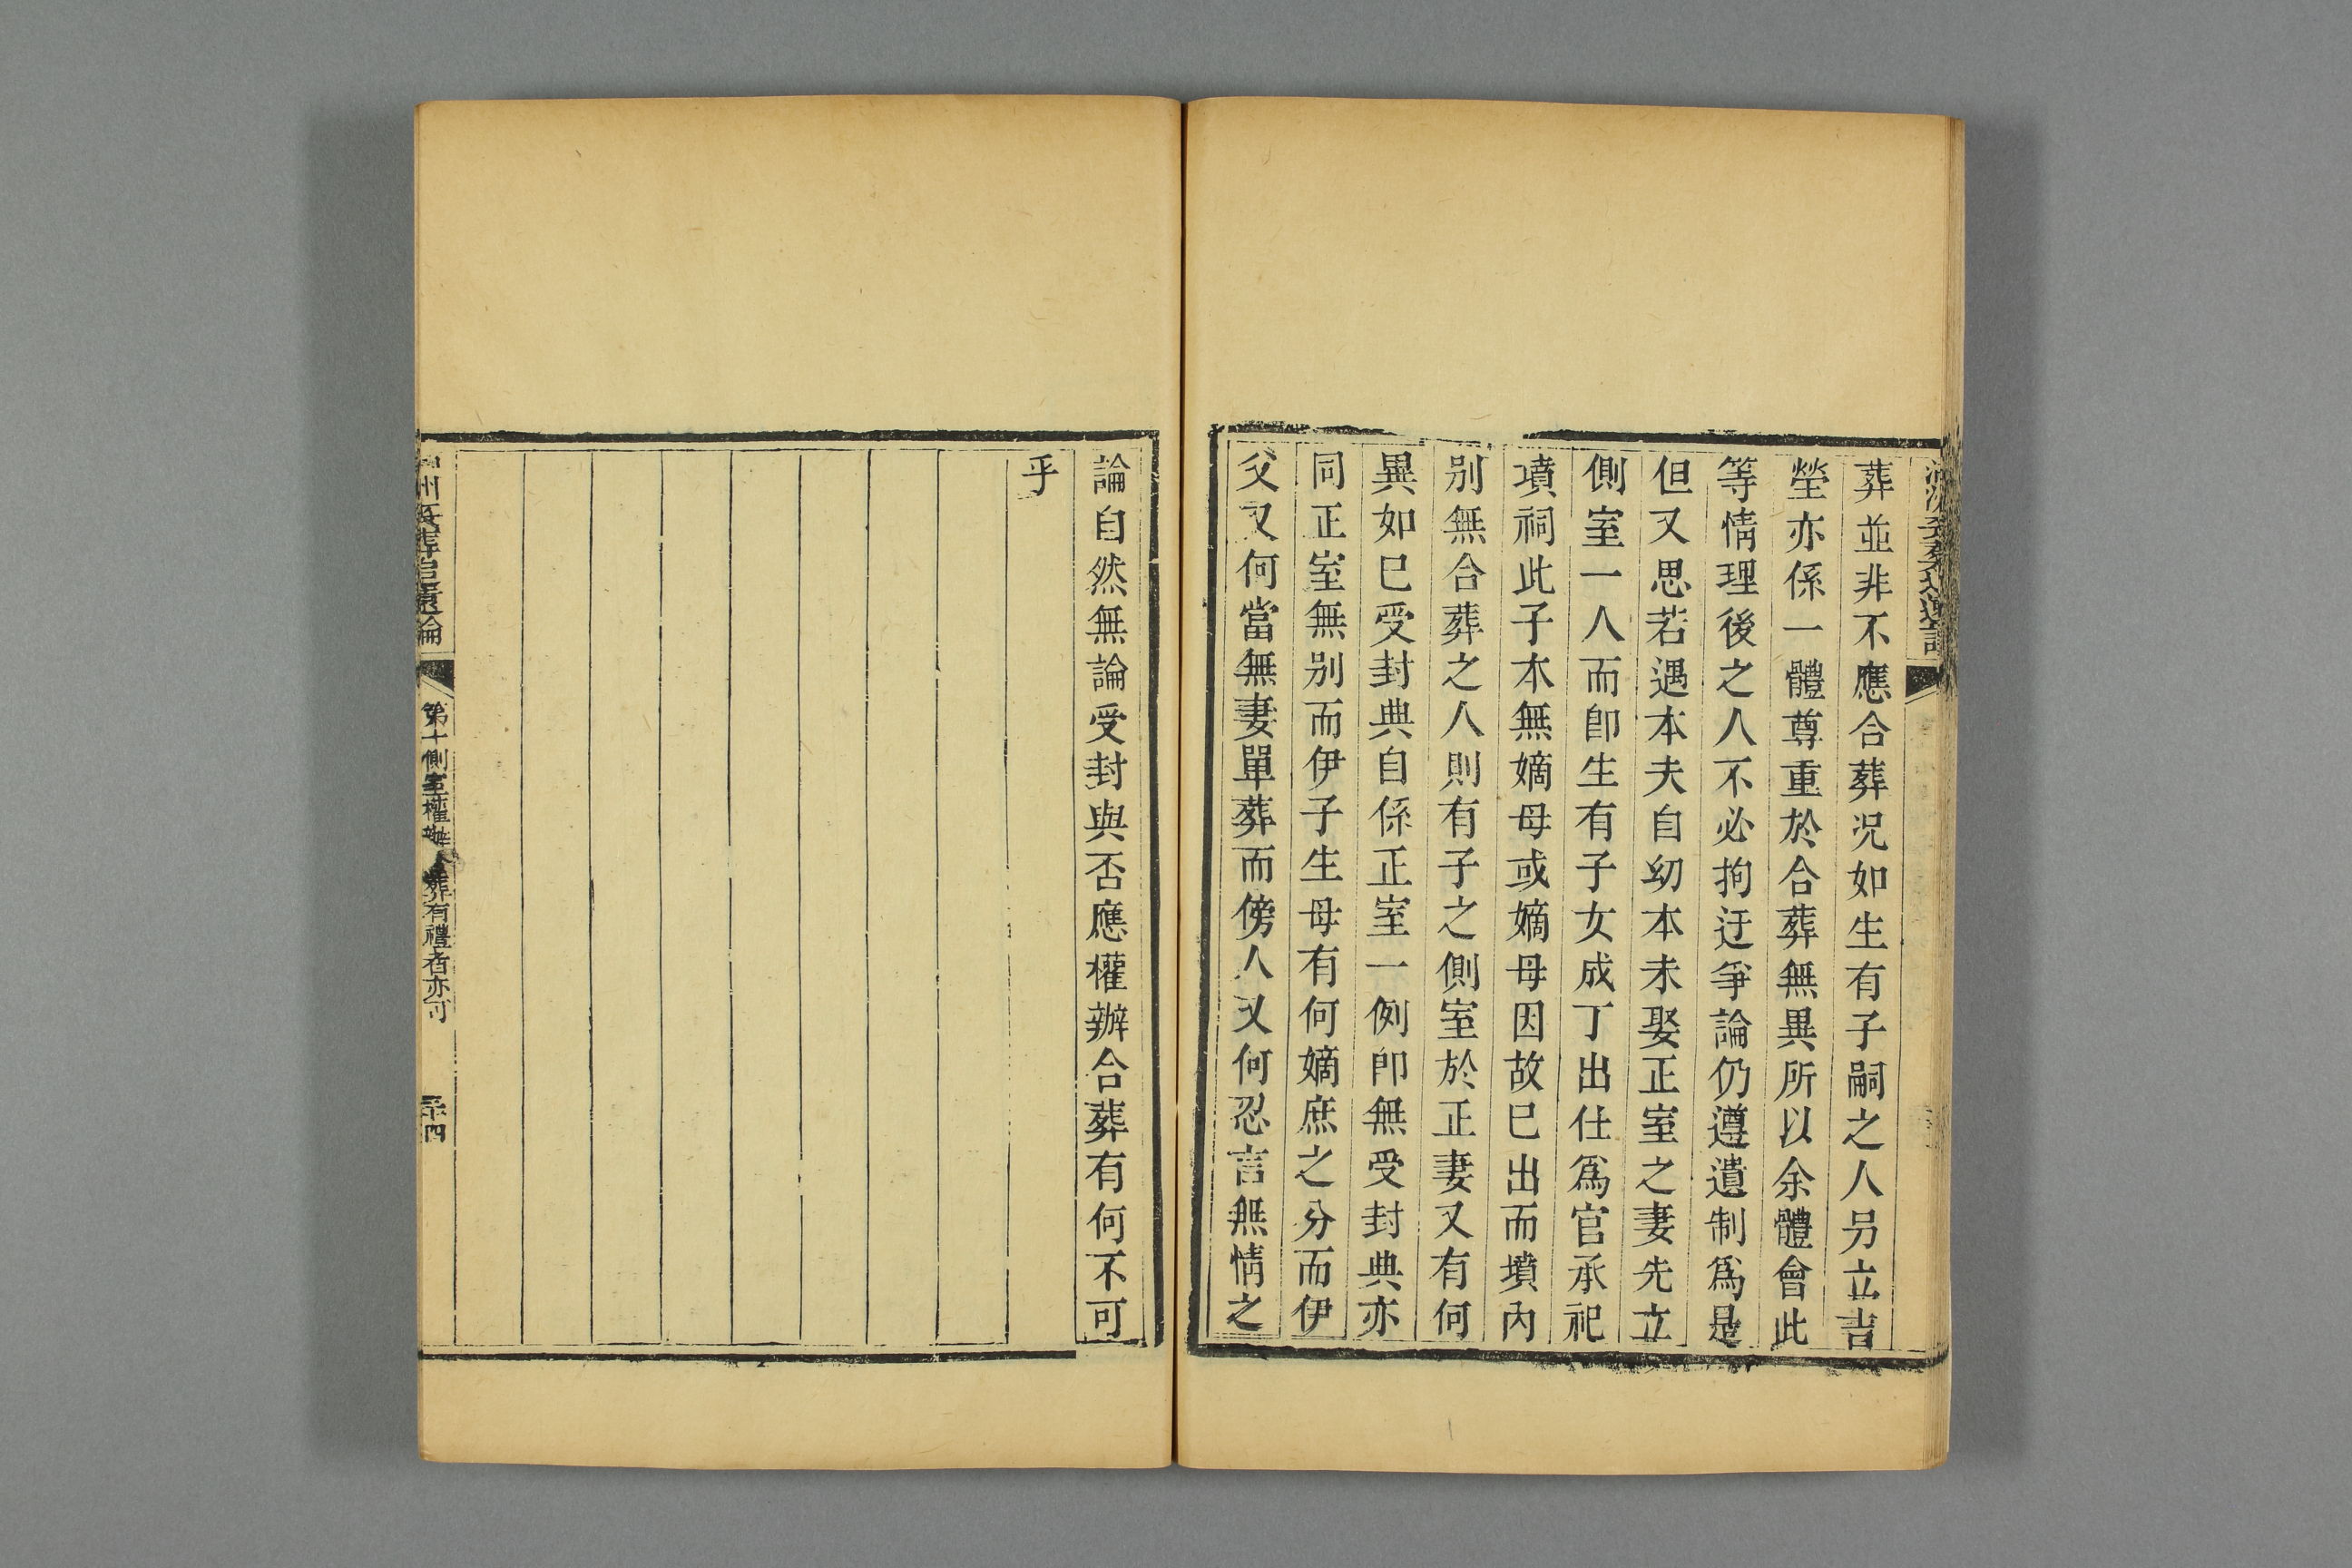 葬並非不應合葬况如生有子嗣之人另立吉
塋亦係一體尊重於合葬無異所以余體會此
等情理後之人不必拘迂爭論仍遵遺制爲是
但又思若遇本夫自幼本未娶正室之妻先立
側室一人而卽生有子女成丁出仕爲官承祀
墳祠此子本無嫡母或嫡母因故巳出而墳內
别無合葬之人則有子之側室於正妻又有何
異如巳受封典自係正室一例卽無受封典亦
同正室無别而伊子生母有何嫡庶之分而伊
父又何當無妻單葬而傍人又何忍言無情之
論自然無論受封與否應權辦合葬有何不可
乎
第十側室權辦合葬有禮者亦可